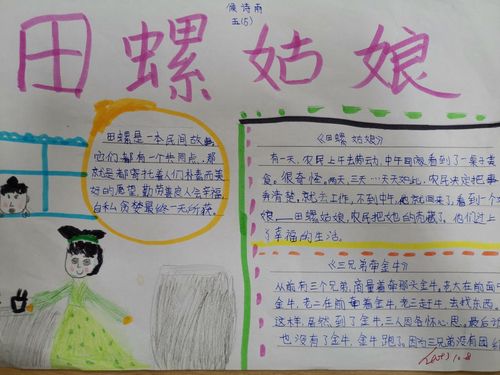 侯诗雨
五(5)
田螺姑娘
田螺是一本民间故事,
它们都有一个共同点,那
就是都寄托着人们朴素而美
好的愿望,勤劳善良人会幸福,
自私贪婪最终一无所获。
《田螺姑娘》
有一天,农民上午去劳动,中午回家,看到了一桌子美
食。很奇怪。两天,三天…天天如此,农民决定把事
弄清楚,就去工作,不到中午,他就回来了,看到一个
娘——田螺姑娘,农民把她的壳藏了,他们过上
了幸福的生活。
《三兄弟牵金牛》
从前有三个兄弟,商量着牵那头金牛。老大在前面
金牛,老二在前 着金牛,老三赶牛,去找东西。
这样,居然 到了金牛,三人因各怀心思。最后
也没有了金牛,金牛跑了。因为三兄弟没有团